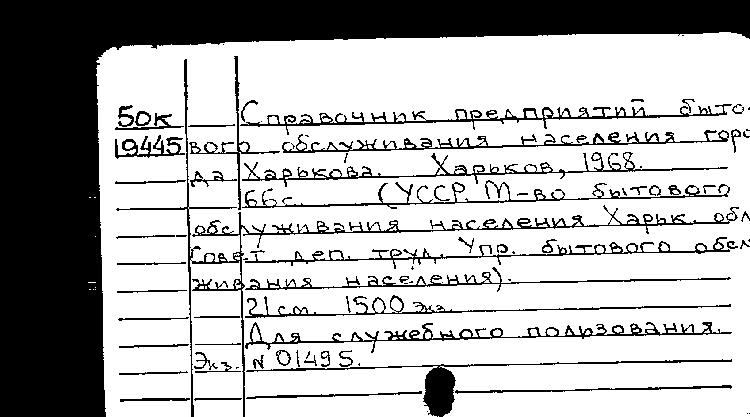 50к Справочник предприятий быто-
19445 вого обслуживания населения горо
да Харькова. Харьков, 1968.
66с. (УССР. М-во бытового
обслуживания населения Харьк. обл
Совет деп. труд. Упр. бытового обсл
живания населения).
21 см. 1500 экз.
Для служебного пользования.
Экз. N 01495.